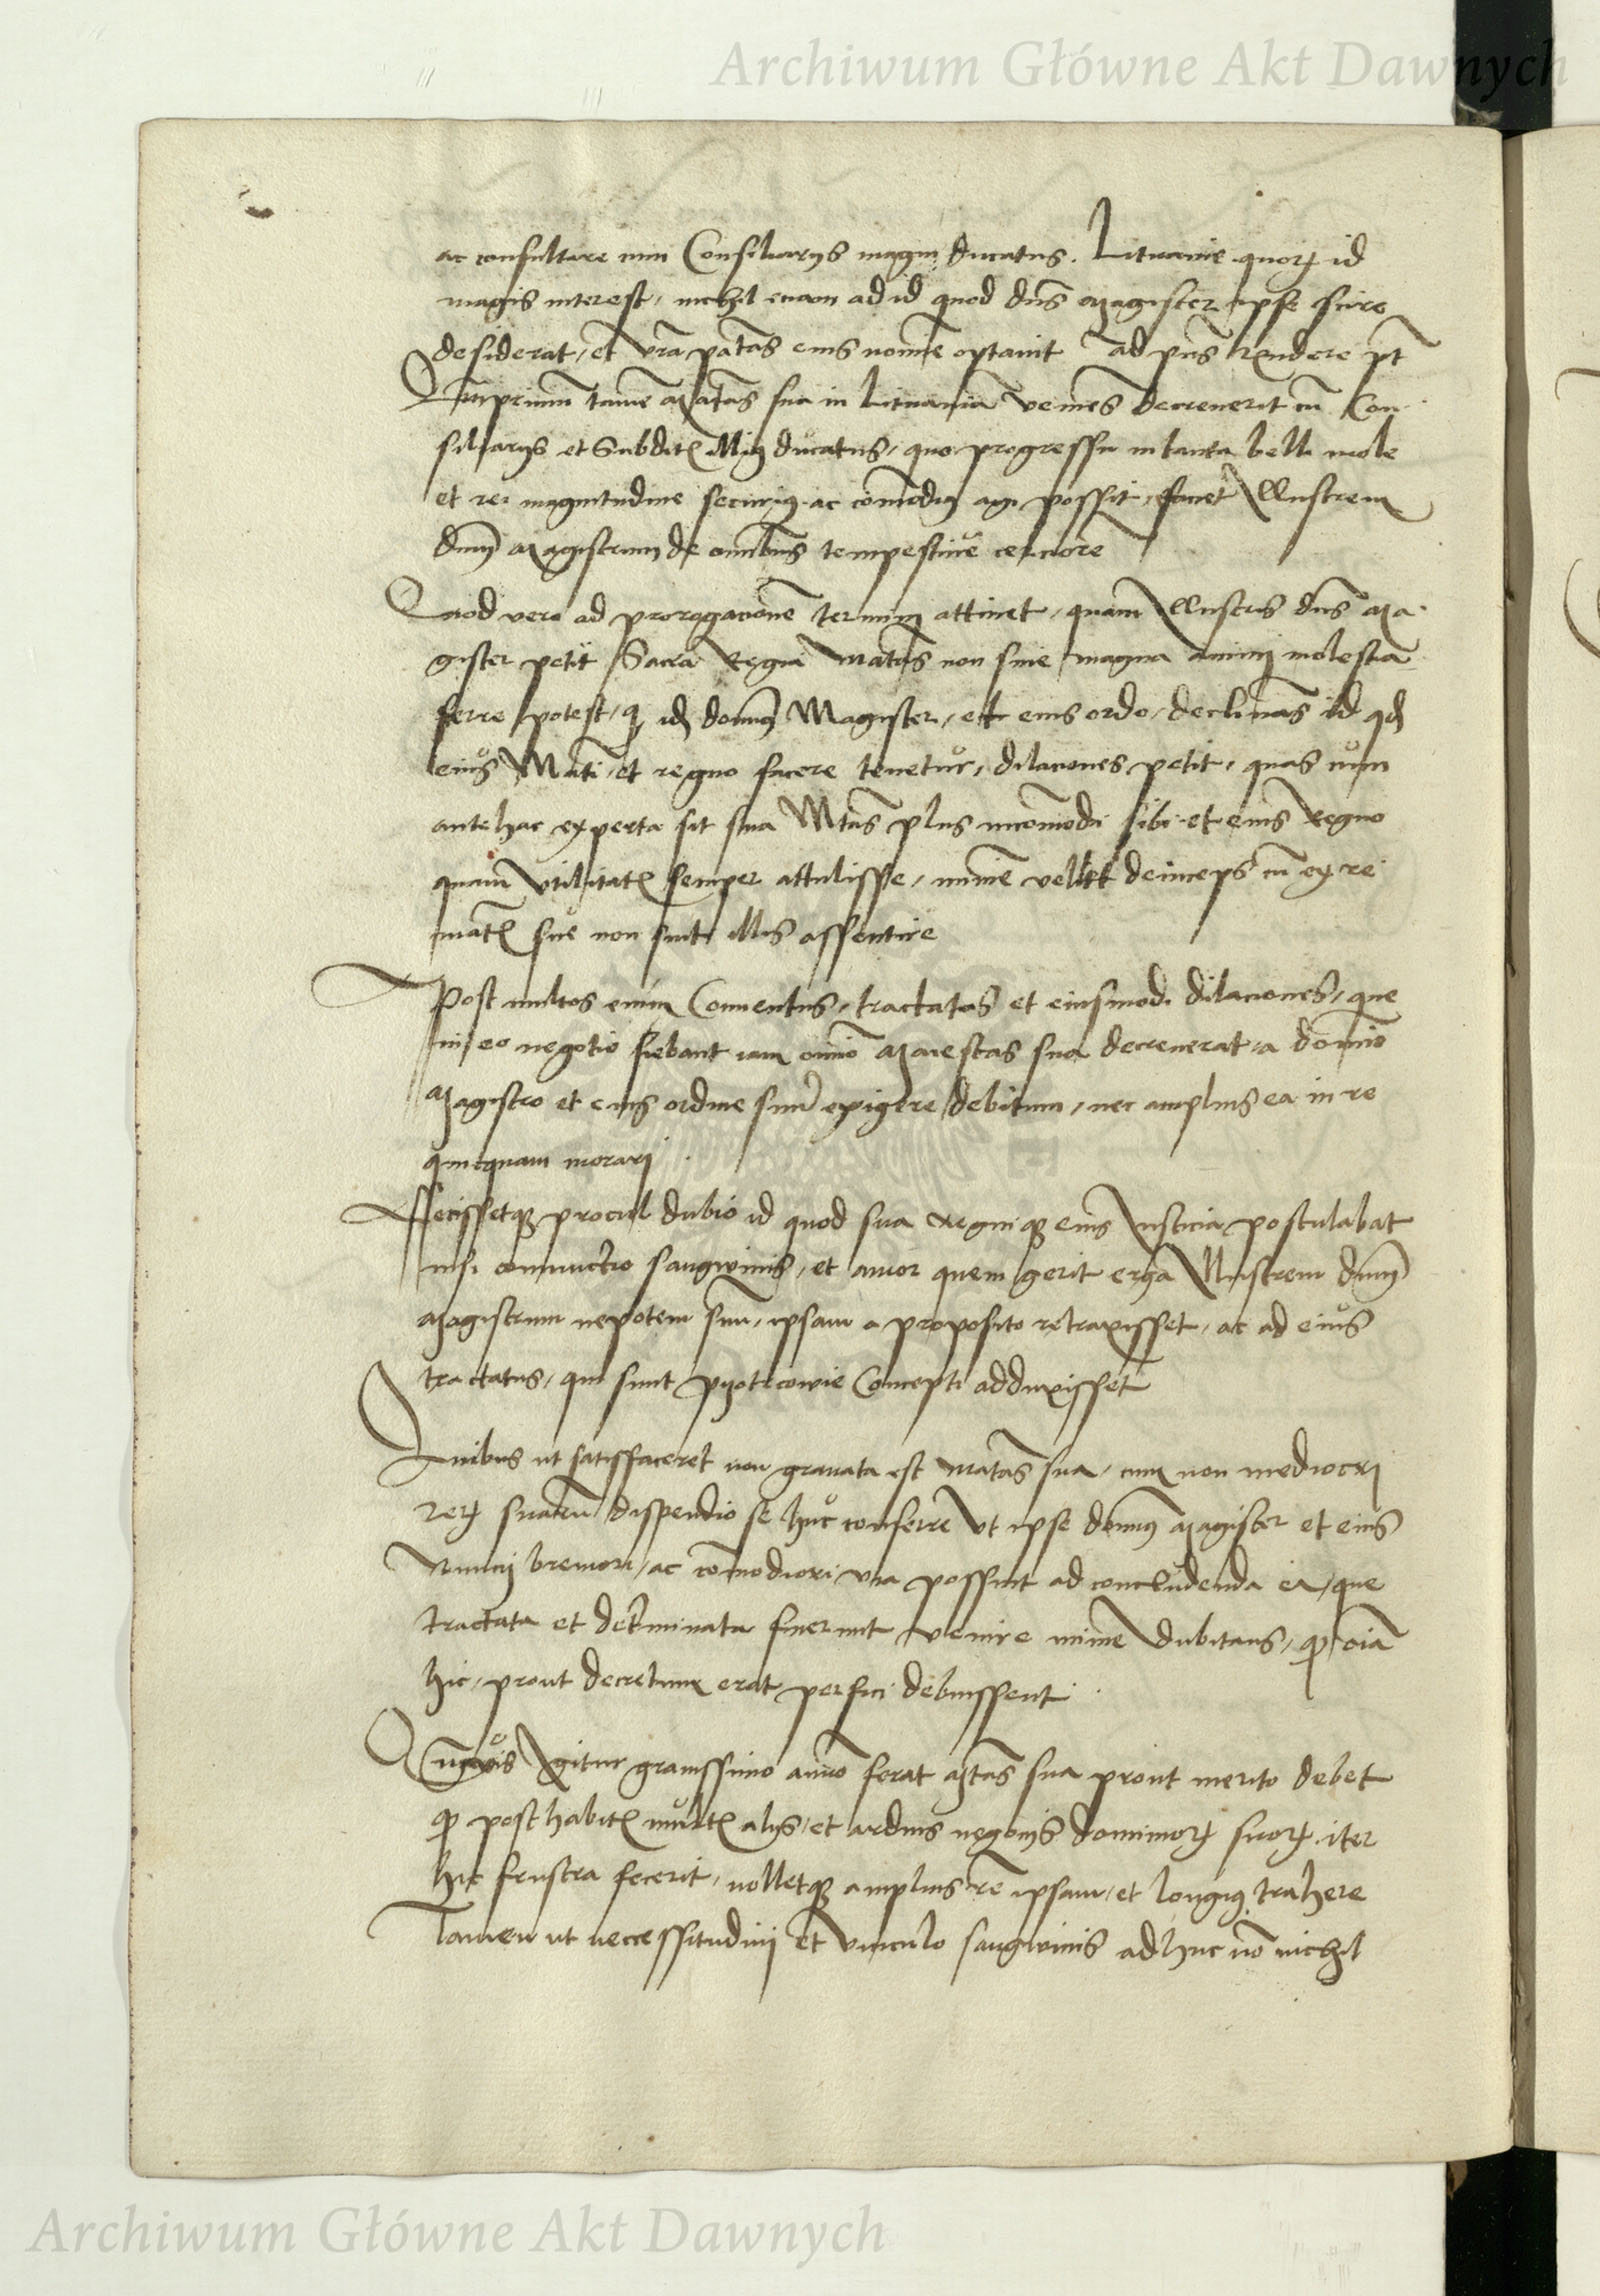 Archiwum Główne Akt Dawnych
ac consultare cum Consiliarijs magni ducatus. Lituanie quorꝫ id
magis interest, nichil etiam ad id quod dn̄s Magister ipse scire
desiderat, et vr̄a pat̄tas eius nomine optauit ad pn̄s respondere pt̄
Quamprimum tamē Mat̄tas sua in Lituaniā veniēs decreuerit cū Con-
siliarijs et Subditꝭ illiꝰ ducatus, quo progressu in tanta belli mole
et rei magnitudine securiꝰ ac com̄odiꝰ agi possit, faciet Illustrem
dnm̄ Magistrum de omnibus tempestiue cerciorē
Quod vero ad prorogacionē termini attinet, quam Illustris dn̄s Ma-
gister petit Sacra Regia Mat̄tas non sine magna animi molestia
ferre potest, qꝫ idē domīnꝰ Magister, et eius ordo, declinās id qd̄
eius Mat̄ti et regno facere tenetur, dilaciones petit, quas cum
antehac experta sit sua Mt̄tas plus incom̄odi sibi et eius Regno
quam vtilitatꝭ semper attulisse, minime vellet deinceps cū ex re
mat̄tꝭ sue non sint illis assentire
Post multos enim Conuentus, tractatus et eiusmodi dilaciones, que
in eo negotio fiebant iam omīno Maiestas sua decreuerat a domīno
Magistro et eius ordine suum exigere debitum, nec amplius ea in re
quicquam morari
Fecissetqꝫ procul dubio id quod sua Regniqꝫ eius Iusticia postulabat
nisi coniunctio sangwinis, et amor quem gerit erga Illustrem dnm̄
Magistrum nepotem suū, ipsam a proposito retraxisset, ac ad eius
tractatus, qui sunt Pyotrcowie Concepti adduxisset
Quibus ut satisfaceret non grauata est Mat̄tas sua, cum non mediocri
rerꝫ suarum dispendio se huc conferre Vt ipse domīnꝰ Magister et eius
Nuncij breuiori, ac com̄odiori via possint ad concludenda ea, que
tractata et det̄minata fuerunt venire minime dubitans, qꝫ oīa
hic, prout decretum erat perfici debuissent
Quamuis Igitur grauissimo animo ferat Mt̄tas sua prout merito debet
qꝫ posthabitꝭ multꝭ alijs, et arduis negocijs dominiorꝫ suorꝫ iter
huc frustra fecerit, nolletqꝫ amplius rem ipsam, et longiꝰ trahere
Tamen ut neccessitudini et vinculo sangwinis adhuc nō nichil
Archiwum Główne Akt Dawnych